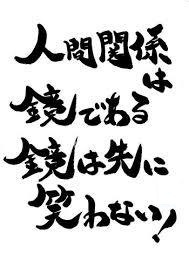 人間関係は
鏡である
鏡は先に
笑わない！